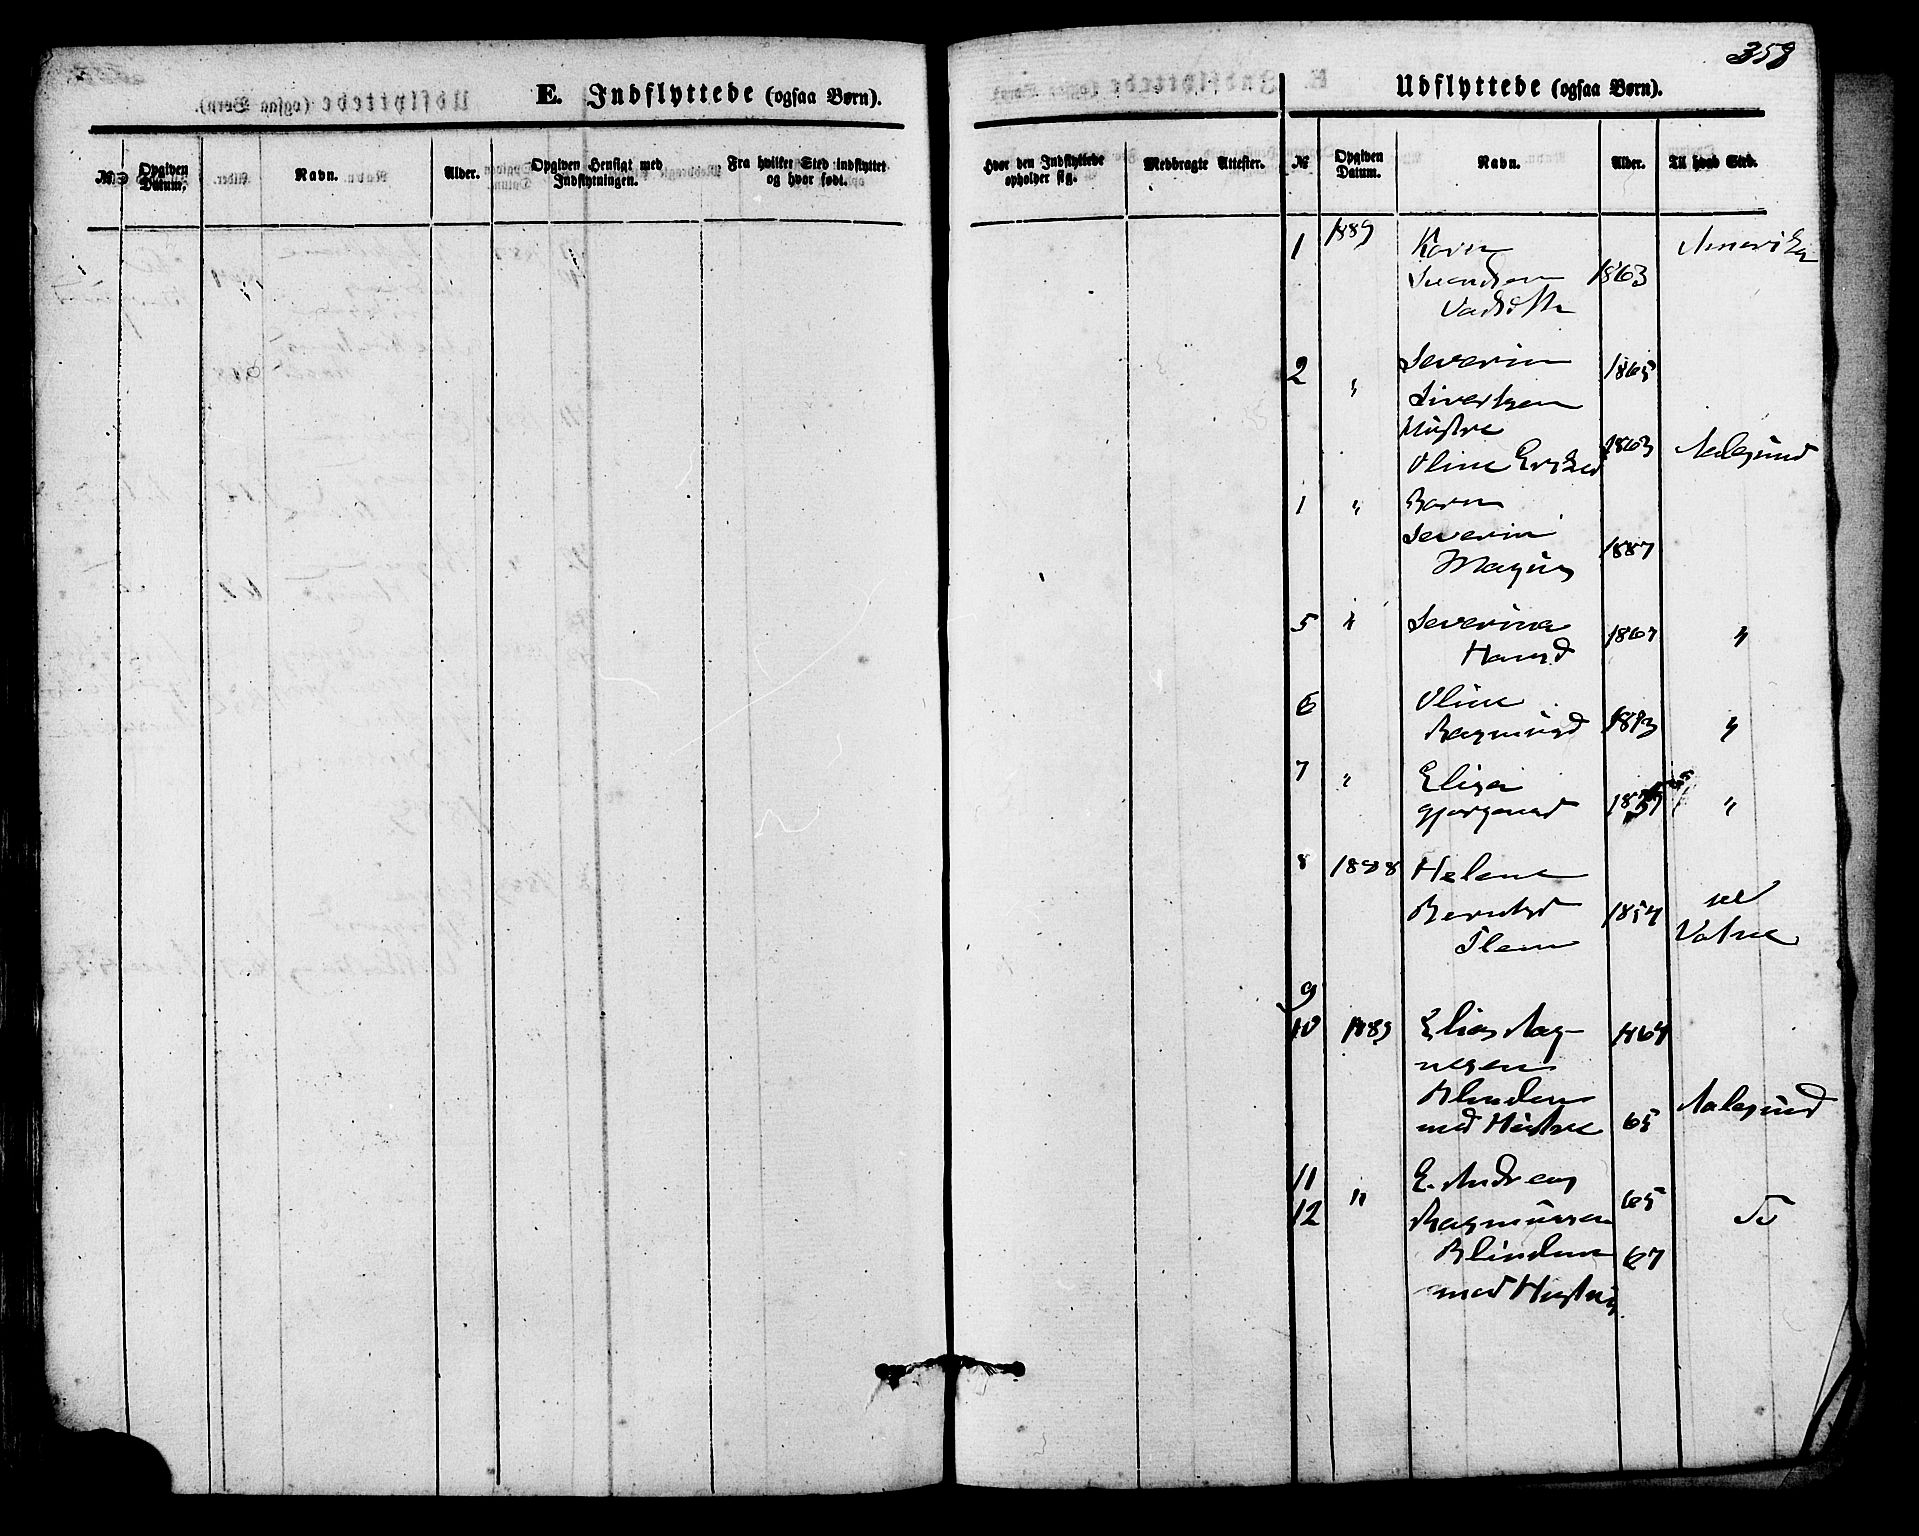 358
E. Indflyttede (ogsaa Børn).
No
Opgiven Datum.
Navn.
Alder.
Opgiven Hensigt med Indflytningen.
Fra hvilket Sted indflyttet og hvor født.
Hvor den Indflyttede opholder sig.
Medbragte Attester.
Udflyttede (ogsaa Børn).
No
Opgiven Datum.
Navn.
Alder.
Til hvad Sted.
1 1889 Karen Amerika
Svendsen 1863
2 " Severin 1865
Sivertsen
Hustru
Oline 1863 Aalesund
1 " Barn
Severin 1887
Magnus
5 " Severina 1867 "
Hansd
6 Oline
Rasmusd "
7 " Elisa
"
8 1888 Helene
Berntsd 1854 til
Vatne
9
10 1889 Elias Aag- 1864
nesen
Blinden
med Hustru 65 Aalesund
11 E. Andreas
12 " Rasmussen 65 Do
Blinden 67
med Hustru